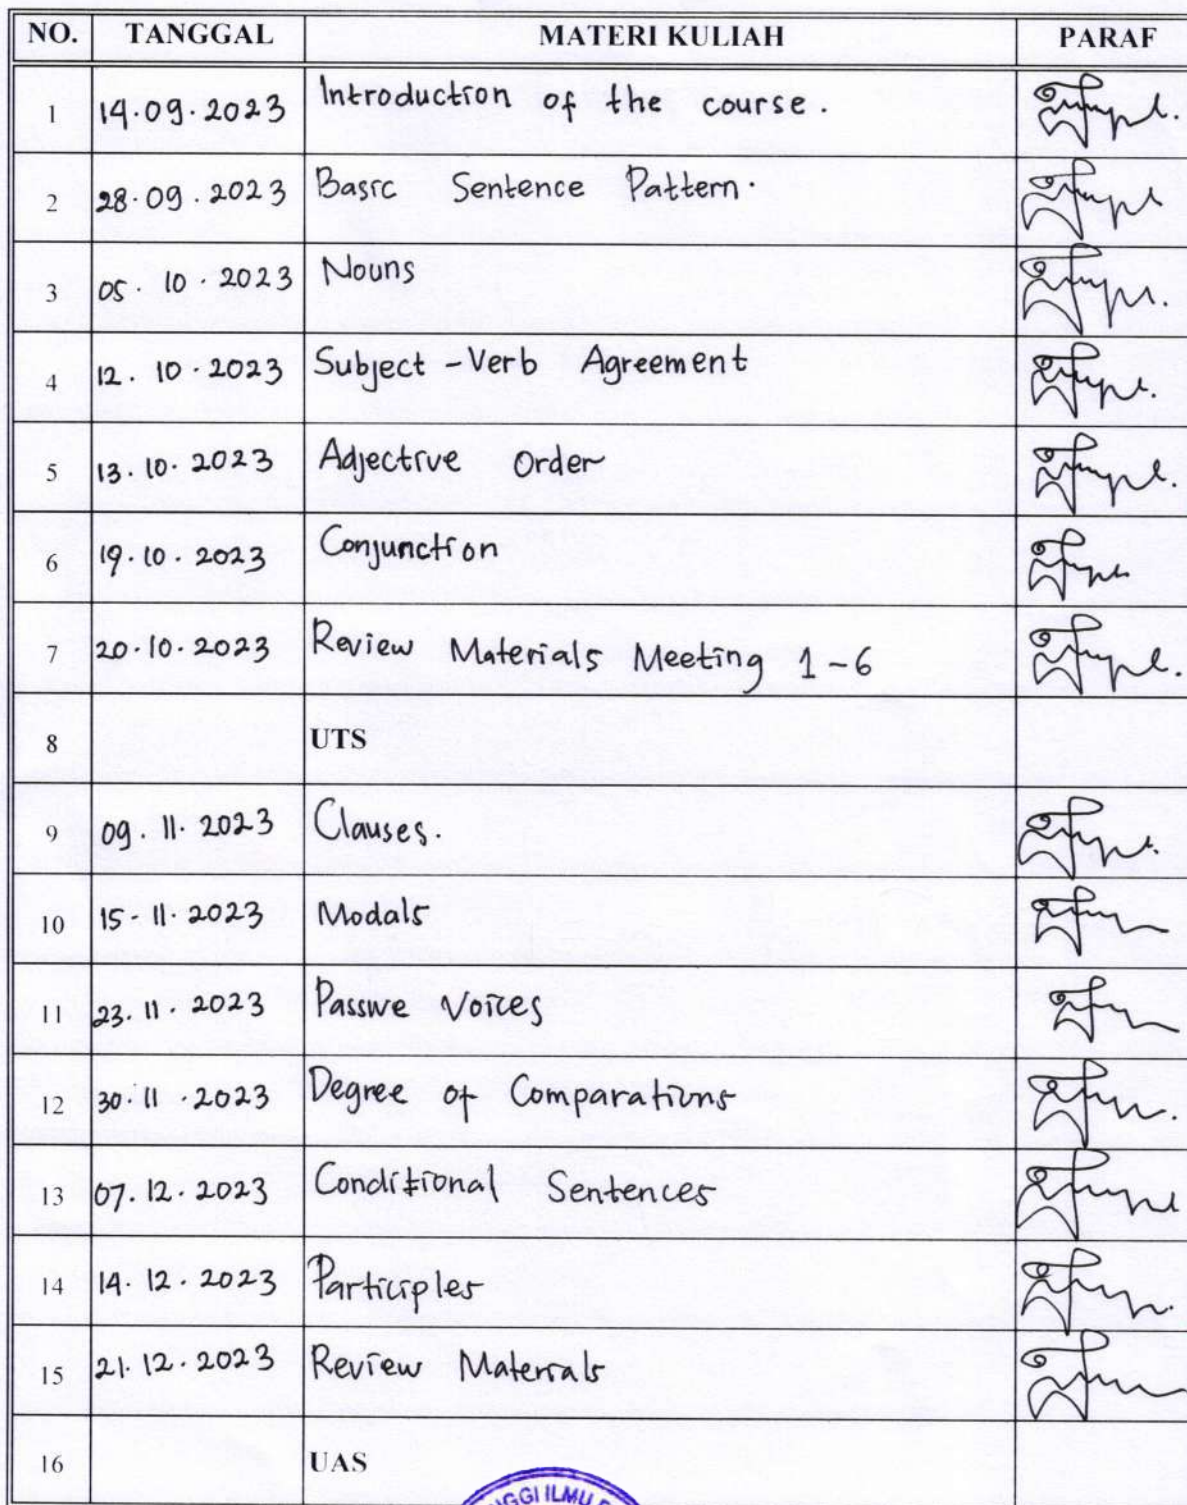 NO. TANGGAL MATERI KULIAH PARAF
1 14.09.2023 Introduction of the course.
2 28.09.2023 Basic Sentence Pattern.
3 05.10.2023 Nouns
4 12.10.2023 Subject-Verb Agreement
5 13.10.2023 Adjective Order
6 19.10.2023 Conjunction
7 20.10.2023 Review Materials Meeting 1-6
8 UTS
9 09.11.2023 Clauses.
10 15-11.2023 Modals
11 23.11.2023 Passive Voices
12 30.11.2023 Degree of Comparations
13 07.12.2023 Conditional Sentences
14 14.12.2023 Participles
15 21.12.2023 Review Materials
16 UAS
GGI ILMU